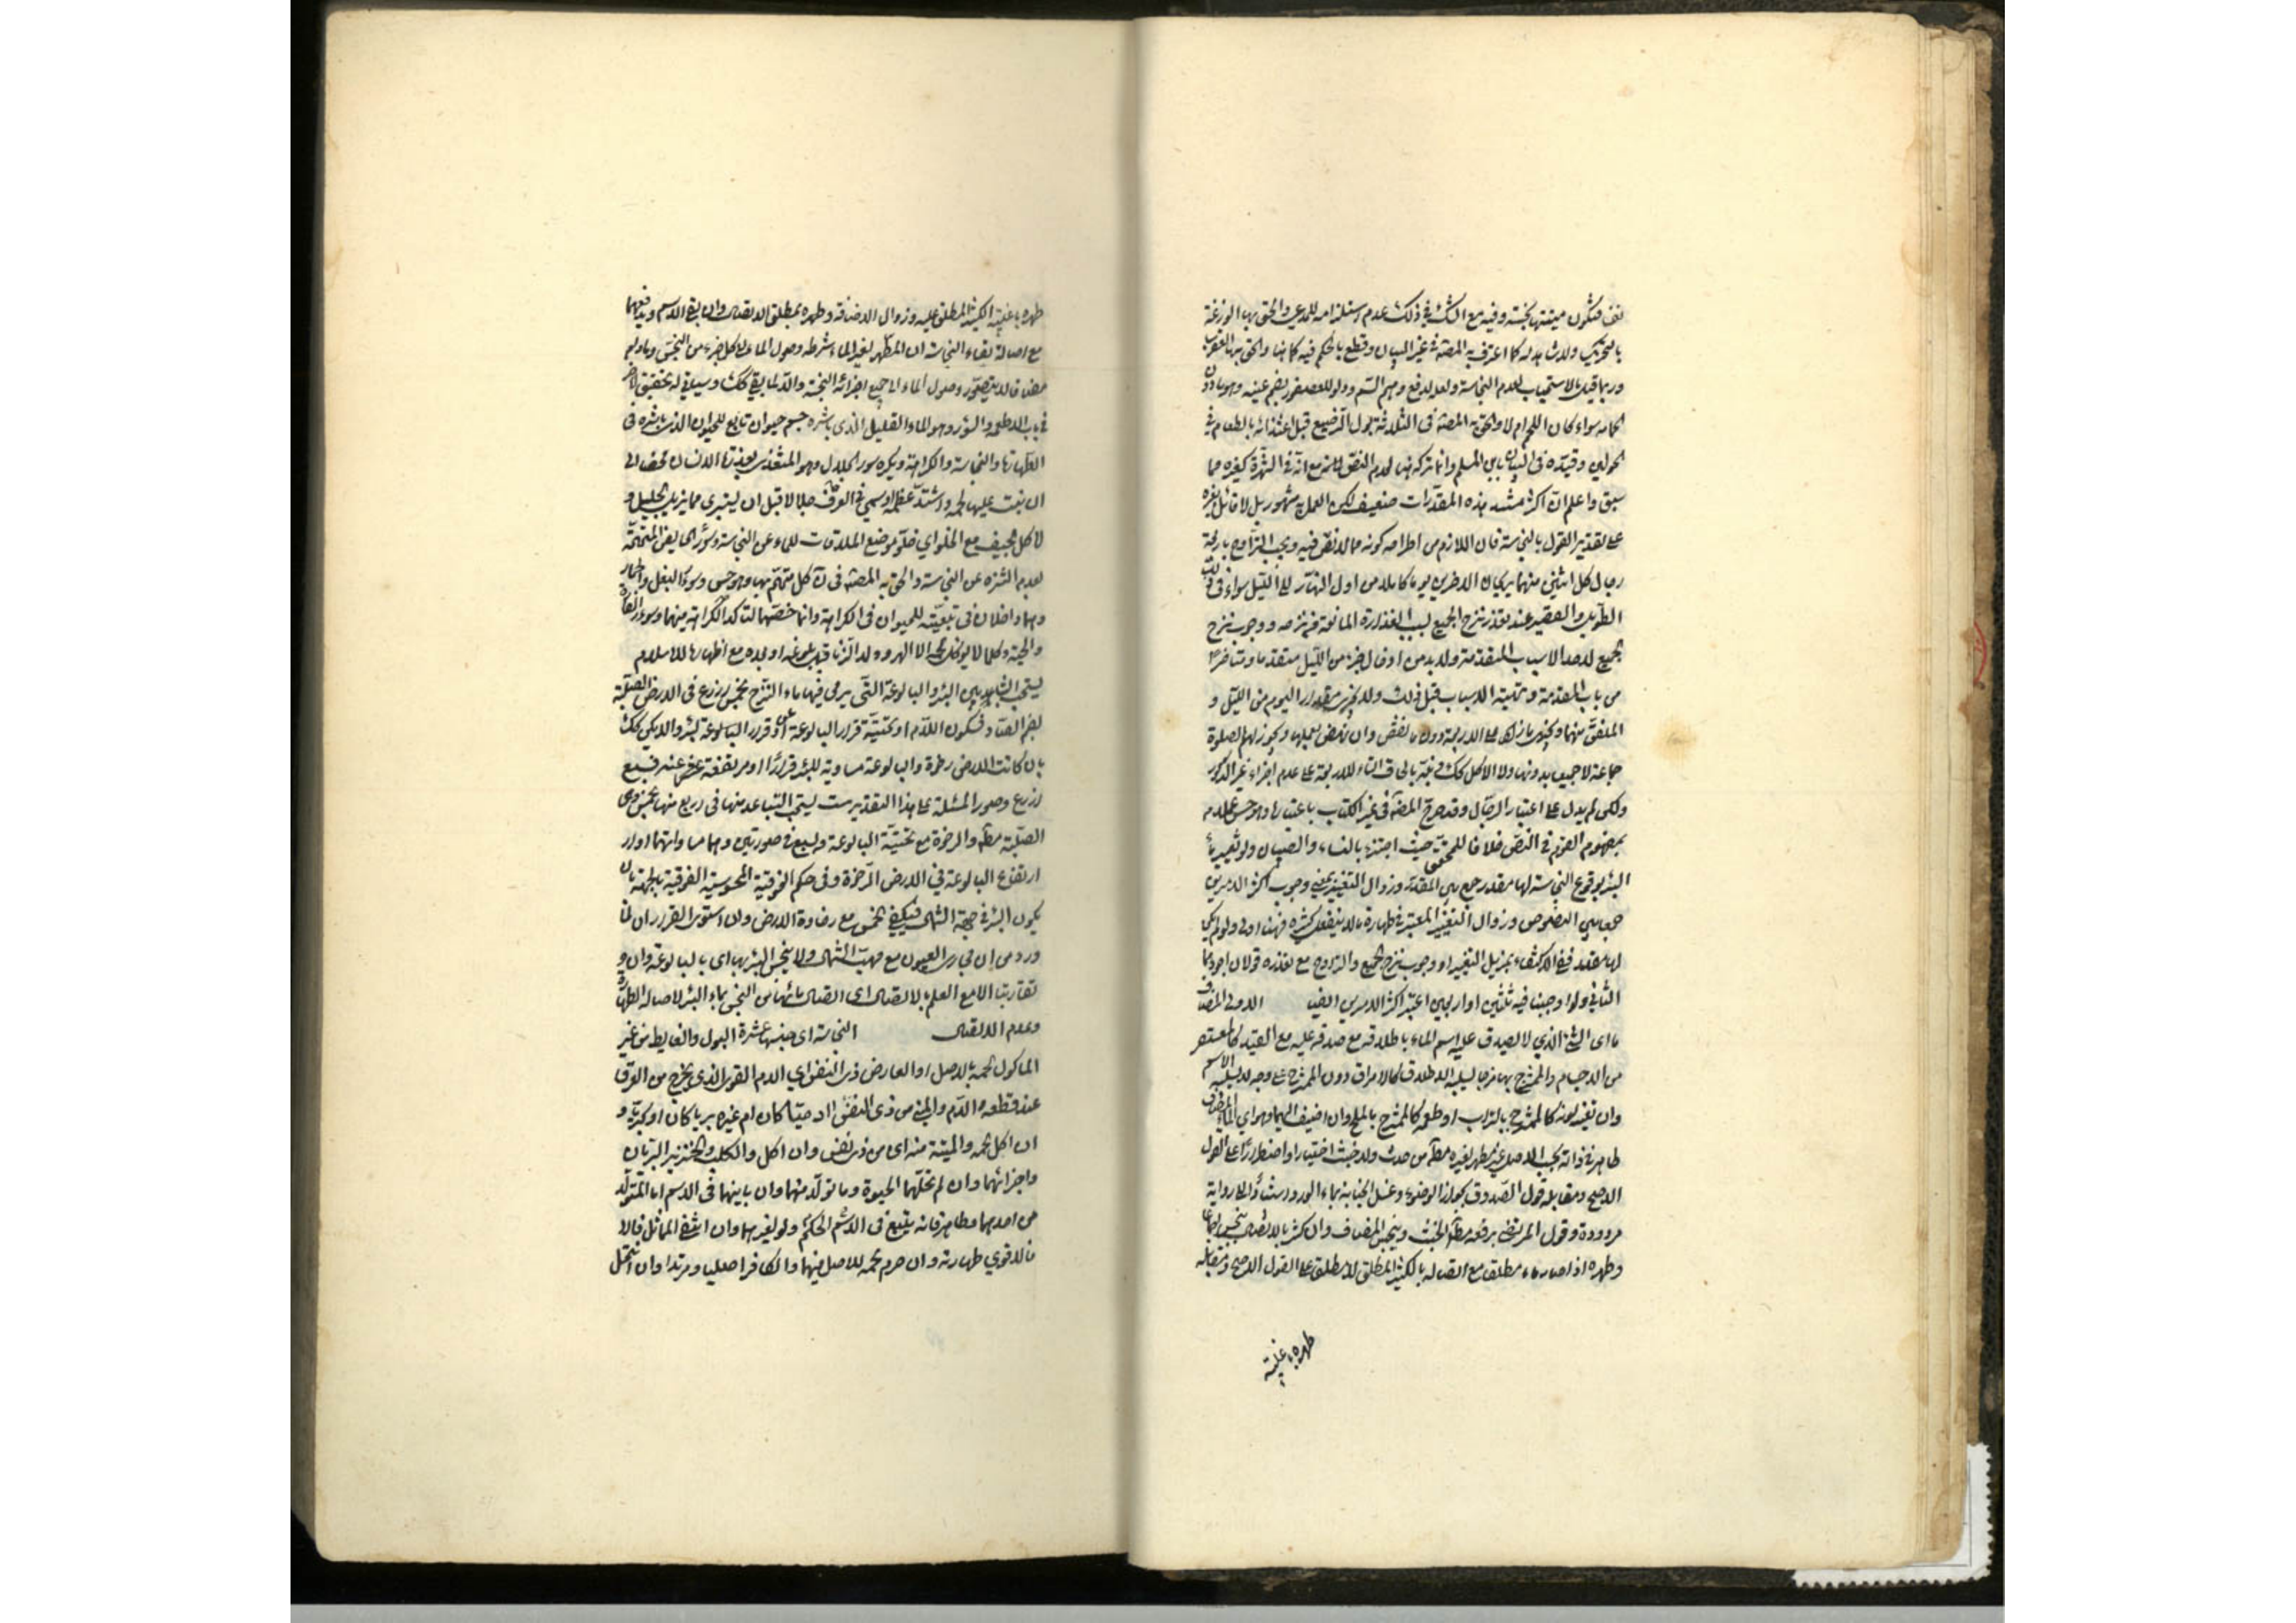 نفس فتكون ميتتها نجسة وفيه مع الشك في ذلك عدم استلزامه للمدعى والحق بها الوزغة
بالتحريك ولا شاهد له كما اعترف به المصنف في غير البيان وقطع بالحكم فيه كما هنا والحق بها العقرب
وربما قيل بالاستحباب لعدم النجاسة ولعله لدفع وهم السم ودلو للعصفور بضم عينه وهو ما دون
الحمامة سواء كان اللحم ام لا والحق به المصنف في الثلاثة بول الرضيع قبل اغتذائه بالطعام في
الحولين وقيده في البيان بابن المسلم وانما تركه هنا لعدم النص مع انه في الشهرة كغيره مما
سبق واعلم ان اكثر مستند هذه المقدرات ضعيف لكن العمل به مشهور بل لا قائل بغيره
على تقدير القول بالنجاسة فان اللازم من اطراحه كونه مما لا نص فيه ويجب التراوح باربعة
رجال كل اثنين منهما يريحان الاخرين يوما كاملا من اول النهار الى الليل سواء في ذلك
الطويل والقصير عند تعذر نزح الجميع بسبب الغزارة المانعة من نزحه ووجوب نزح
الجميع لاحد الاسباب المتقدمة ولا بد من ادخال جزء من الليل متقدما ومتاخرا
من باب المقدمة وتهيئة الاسباب قبل ذلك ولا يجزي مقدار اليوم من الليل و
الملفق منهما ويجزي ما زاد على الاربعة دون ما نقص وان نهض بعملها ويجوز لهم الصلوة
جماعة لا جميعا بدونها ولا الاكل كك ونبه بالحاق التاء للاربعة على عدم اجزاء غير الذكور
ولكن لم يدل على اعتبار الرجال وقد صرح المصنف في غير الكتاب باعتباره وهو حسن عملا
بمفهوم القوم في النص خلافا للمحقق حيث اجتزء بالنساء والصبيان ولو تغير ماء
البئر بوقوع النجاسة لها مقدر جمع بين المقدر وزوال التغيير بمعنى وجوب اكثر الامرين
جمعا بين النصوص وزوال التغيير المعتبر في طهارة ما لا ينفعل كثيره فهنا اولى ولو لم يكن
لها مقدر ففي الاكتفاء بمزيل التغيير او وجوب نزح الجميع والتراوح مع تعذره قولان اجودهما
الثاني ولو اوجبنا فيه ثلثين او اربعين اعتبر اكثر الامرين ايضا الاولى المضاف
ما اي الشئ الذي لا يصدق عليه اسم الماء باطلاقه مع صدقه عليه مع القيد كالمعتصر
من الاجسام والممتزج بها مزجا يسلبه الاطلاق كالامراق دون الممتزج على وجه لا يسلبه الاسم
وان تغير لونه كالممتزج بالتراب او طعمه كالممتزج بالملح وان اضيف اليهما وهو اي الماء المضاف
طاهر في ذاته بحسب الاصل غير مطهر لغيره مطلقا من حدث ولا خبث اختيارا واضطرارا على القول
الاصح ومقابله قول الصدوق بجواز الوضوء وغسل الجنابة بماء الورد استنادا الى رواية
مردودة وقول المرتضى برفعه مطلقا الخبث وينجس المضاف وان كثر بالاتصال بالنجس اجماعا
وطهره اذا صار ماء مطلقا مع اتصاله بالكثير المطلق لا مطلقا على القول الاصح ومقابله
طهره باغلبية
طهره باغلبية الكثير المطلق عليه وزوال الاضافة وطهره بمطلق الاتصال وان بقي الاسم ويدفعهما
مع اصالة بقاء النجاسة ان المطهر لغير الماء شرطه وصول الماء الى كل جزء من النجس وما دام
مضافا لا يتصور وصول الماء الى جميع اجزائه النجسة والا لما بقي كك وسياتي له تحقيق اخر
في باب الاطعمة والسؤر وهو الماء القليل الذي باشره جسم حيوان تابع للحيوان الذي باشره في
الطهارة والنجاسة والكراهة ويكره سؤر الجلال وهو المغتذي بعذرة الانسان محضا الى
ان ينبت عليها لحمه واشتد عظمه او سمي في العرف جلالا قبل ان يستبرى بما يزيل الجلل و
اكل الجيف مع الخلو اي خلو موضع الملاقات للماء عن النجاسة وسؤر الحايض المتهمة
بعدم التنزه عن النجاسة والحق به المصنف في ن كل متهم بها وهو حسن وسؤر البغل والحمار
وهما داخلان في تبعيته للحيوان في الكراهة وانما خصهما لتاكد الكراهة فيهما وسؤر الفارة
والحية وكلما لا يؤكل لحمه الا الهر وولد الزنا قبل بلوغه او بعده مع اظهاره للاسلام
يستحب التباعد بين البئر والبالوعة التي يرمى فيها ماء النزح بخمس اذرع في الارض الصلبة
بضم الصاد وسكون اللام او تحتية قرار البالوعة عن قرار البئر والا يكن كك
بان كانت الارض رخوة والبالوعة مساوية للبئر قرارا او مرتفعة عنه فسبع
اذرع وصور المسئلة على هذا التقدير ست يستحب التباعد منها في اربع منها بخمس وهي
الصلبة مطلقا والرخوة مع تحتية البالوعة وبسبع في صورتين وهما مساواتهما او
ارتفاع البالوعة في الارض الرخوة وفي حكم الفوقية المحسوسة الفوقية بالجهة بان
يكون البئر في جهة الشمال فيكفي الخمس مع رخاوة الارض وان استوى القراران لما
ورد من ان مجاري العيون مع مهب الشمال ولا ينجس البئر بها اي بالبالوعة وان
تقاربتا الا مع العلم بالاتصال اي اتصال مائها من النجس بماء البئر لاصالة الطهارة
وعدم الاتصال النجاسة اي جنسها عشرة البول والغايط من غير
الماكول لحمه بالاصل او العارض ذي النفس اي الدم القوي الذي يخرج من العرق
عند قطعه والدم والمني من ذي النفس ادميا كان ام غيره بريا كان او بحريا و
ان اكل لحمه والميتة منه اي من ذي نفس وان اكل والكلب والخنزير البريان
واجزائهما وان لم تحلها الحيوة وما تولد منهما وان باينهما في الاسم اما المتولد
من احدهما وطاهر فانه يتبع في الاسم الحكم ولو لغيرهما وان انتفى المماثل فالا
فالاقوى طهارته وان حرم لحمه للاصل فيهما والكافر اصليا ومرتدا وان انتحل